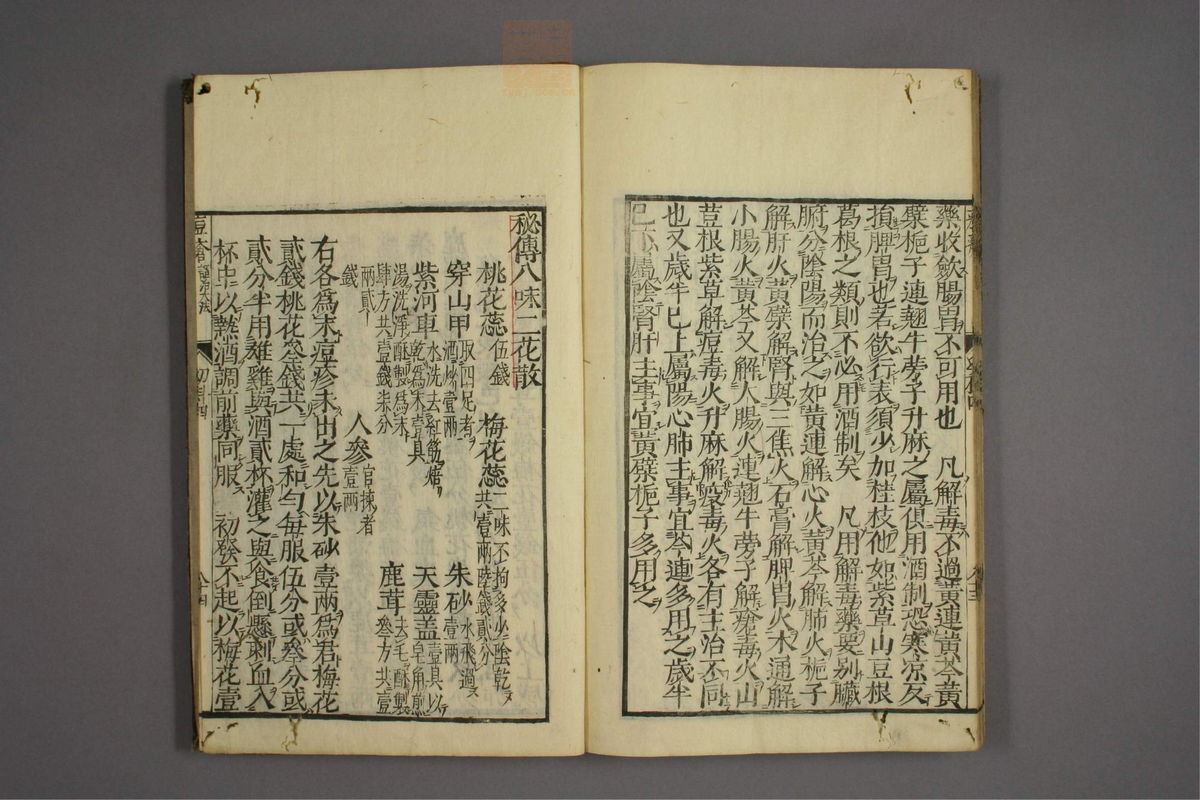 藥收斂腸胃不可用也　凡解毒不過黃連黃芩黃
檗梔子連翹牛蒡子升麻之屬俱用酒制恐寒凉反
損脾胃也若欲行表須少加桂枝他如紫草山豆根
葛根之類則不必用酒制矣　凡用解毒藥要别臟
腑分陰陽而治之如黃連解心火黃芩解肺火梔子
解肝火黃檗解腎與三焦火石膏解脾胃火木通解
小腸火黃芩又解大腸火連翹牛蒡子解瘡毒火山
荳根紫草解痘毒火升麻解疫毒火各有主治不同
也又歲半已上屬陽心肺主事宜芩連多用之歲半
已下屬陰腎肝主事宜黃檗梔子多用之
秘傳八味二花散
桃花蕊伍錢　梅花蕊二味不拘多少陰乾共壹兩陸錢貳分
穿山甲取四足者酒炒壹兩　朱砂水飛過壹兩
紫河車水洗去紅筋乾爲末壹具　天靈盖壹具以皂角煎
湯洗淨酥製爲末肆方共壹錢柒分　鹿茸去毛酥製叄方共壹
兩貳錢　人參官揀者壹兩
右各爲末痘疹未出之先以朱砂壹兩爲君梅花
貳錢桃花叄錢共一處和勻每服伍分或叄分或
貳分半用雄雞與酒貳杯灌之與食倒懸剌血入
杯中以熱酒調前藥同服　初發不起以梅花壹